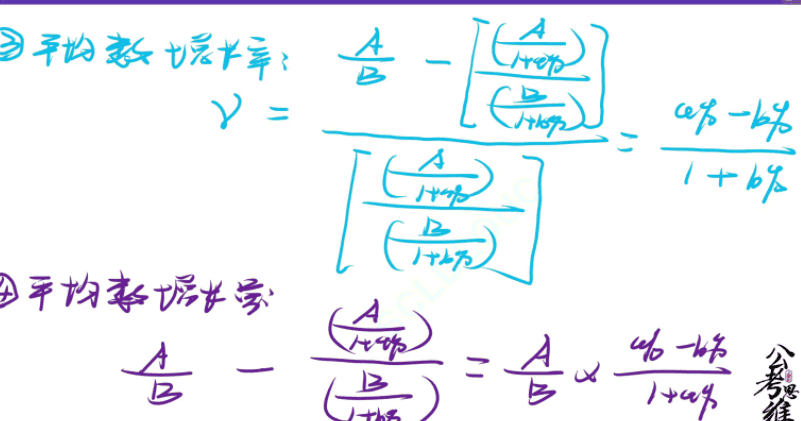 ③平均数增长率:
r = (A/B − [(A/(1+a%))/(B/(1+b%))]) / [(A/(1+a%))/(B/(1+b%))] = (a% − b%)/(1 + b%)
④平均数增长量:
A/B − (A/(1+a%))/(B/(1+b%)) = A/B × (a% − b%)/(1+a%)
公考思维